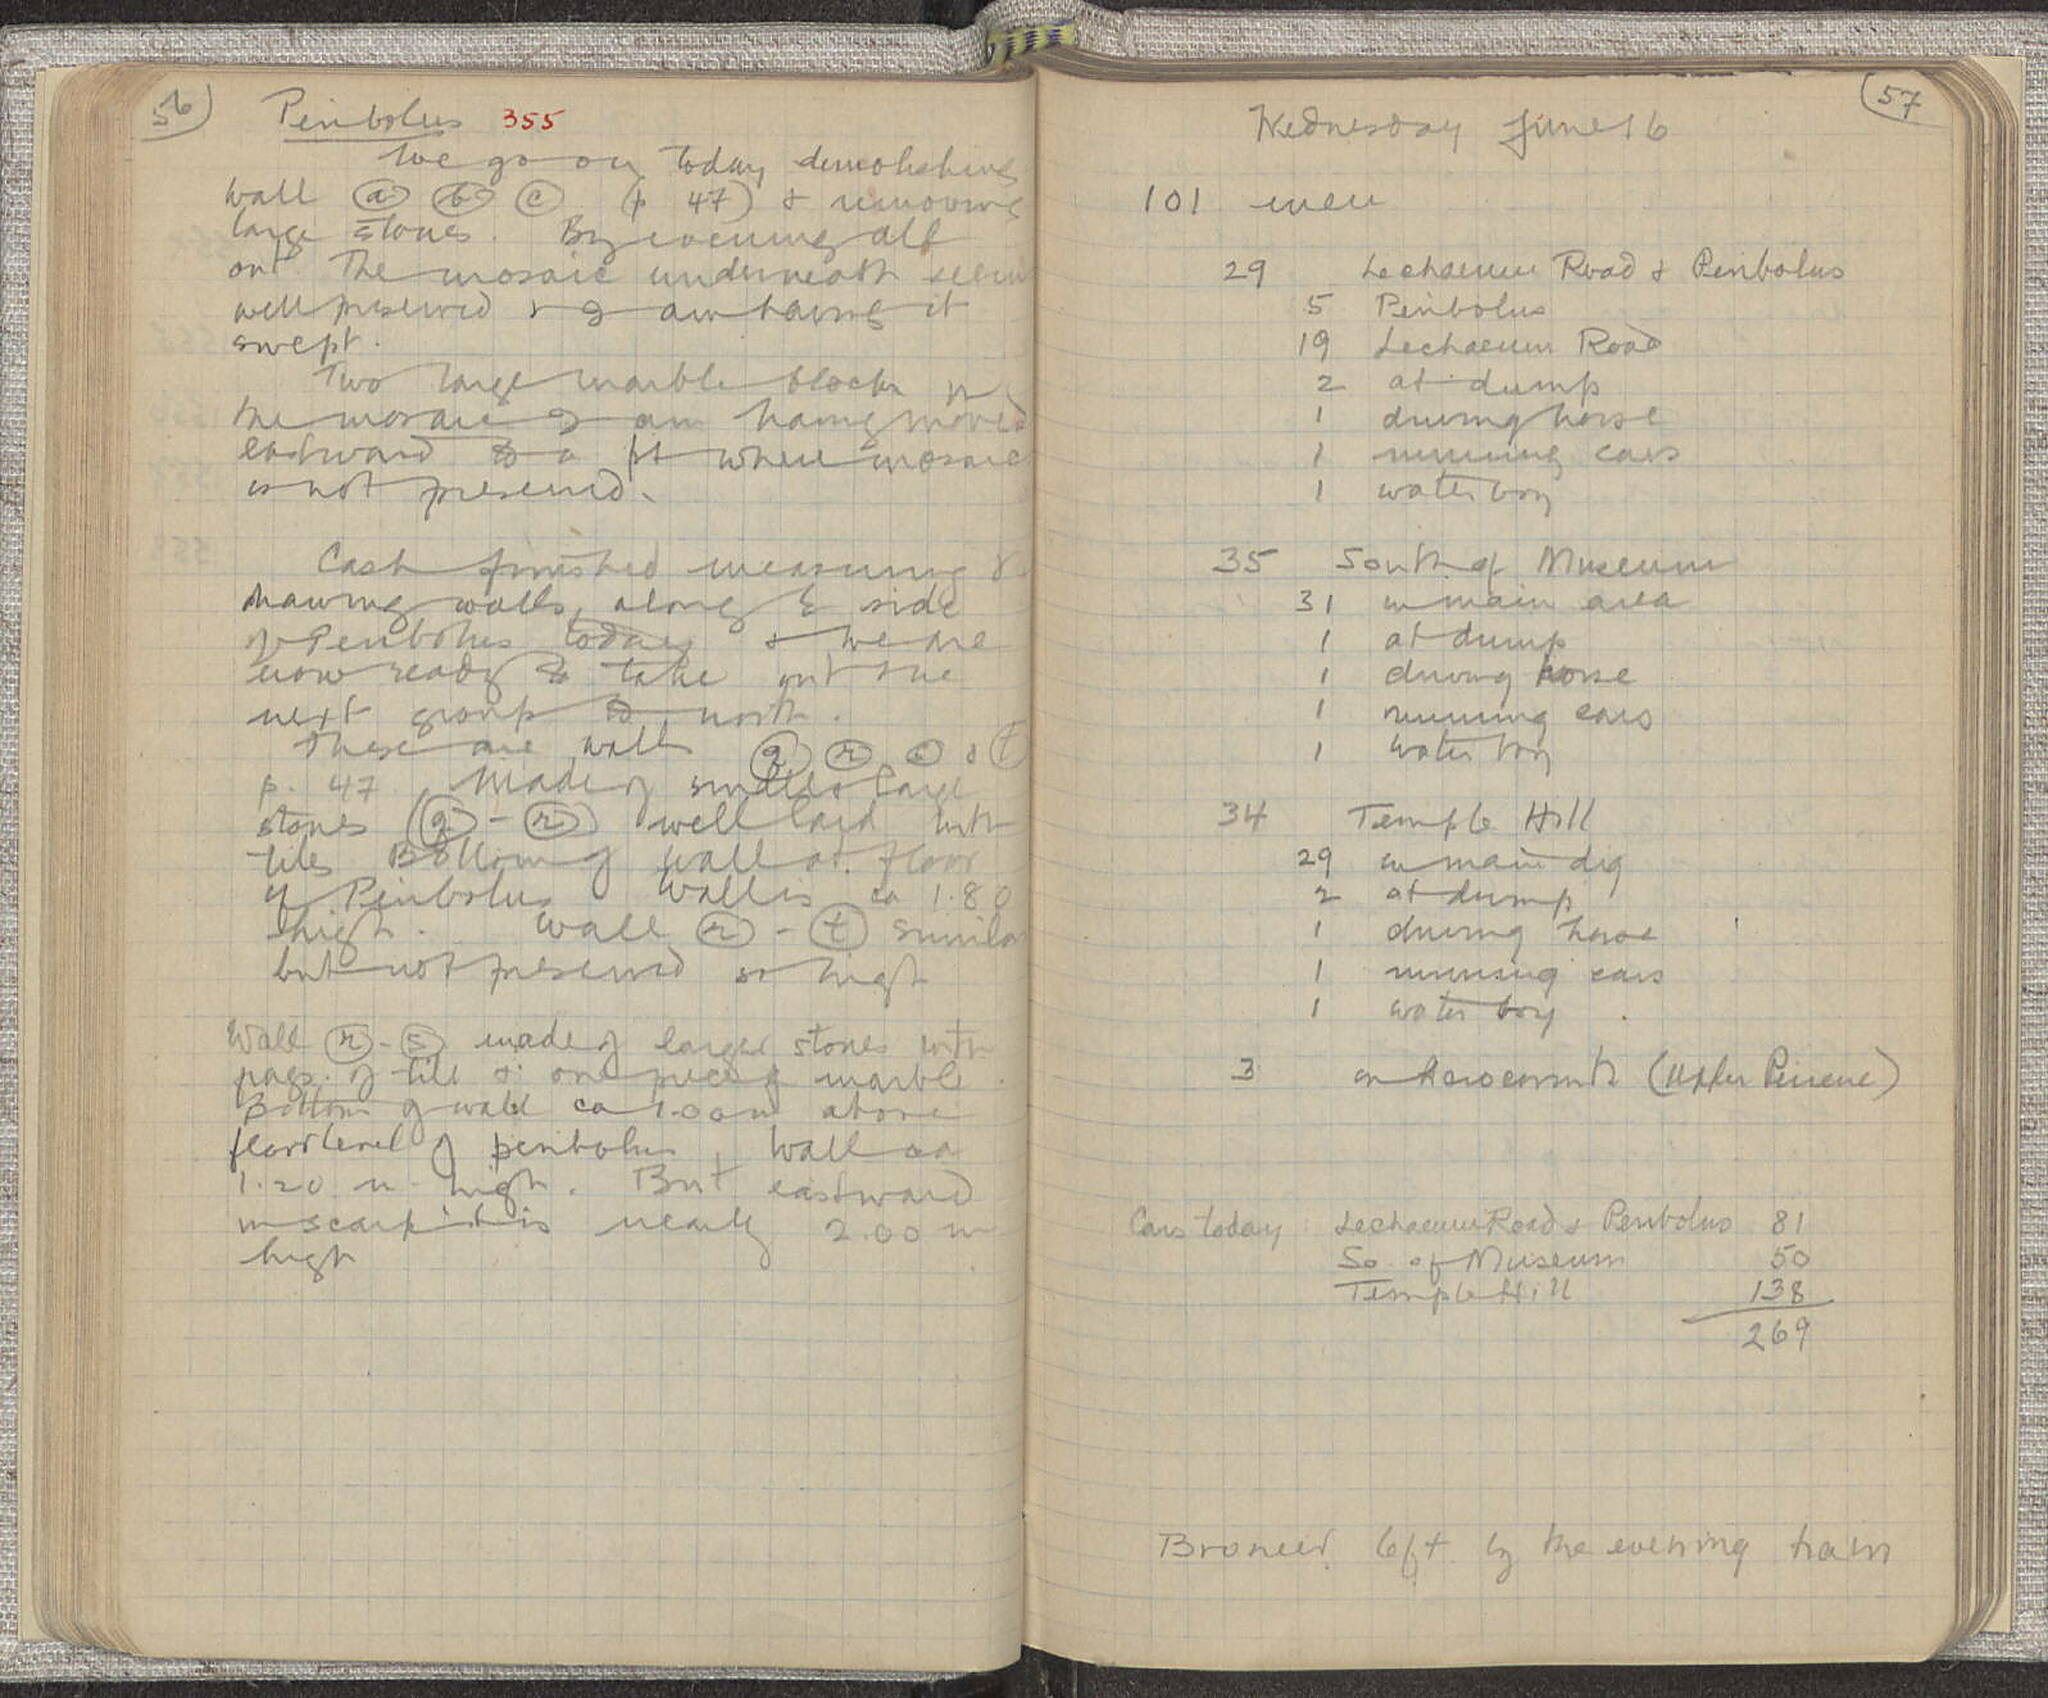 56
Peribolus 355
We go on today demolishing
wall (a) (b) (c) (p 47) & removing
large stones. By evening all
out. The mosaic underneath seems
well preserved & I am having it
swept.
Two large marble blocks in
the mosaic I am having moved
eastward to a pt where mosaic
is not preserved.
Cash finished measuring &
drawing walls, along E side
of Peribolus today & we are
now ready to take out the
next group to north.
These are walls (q) (r) (s) & (t)
p. 47. Made of small & large
stones (q) - (r) well laid with
tiles. Bottom of wall at floor
of Peribolus. Wall is ca 1.80
high. Wall (r) - (t) similar
but not preserved so high
Wall (r) - (s) made of larger stones with
frags. of tile & one piece of marble.
Bottom of wall ca 1.00 m above
floor level of peribolus, wall ca
1.20 m high. But eastward
in scarp it is nearly 2.00 m
high
57
Wednesday June 16
101 men
29 Lechaeum Road & Peribolus
5 Peribolus
19 Lechaeum Road
2 at dump
1 driving horse
1 running cars
1 water boy
35 South of Museum
31 in main area
1 at dump
1 driving horse
1 running cars
1 water boy
34 Temple Hill
29 in main dig
2 at dump
1 driving horse
1 running cars
1 water boy
3 on Acrocorinth (Upper Peirene)
Cars today: Lechaeum Road & Peribolus 81
So. of Museum 50
Temple Hill 138
269
Broneer left by the evening train